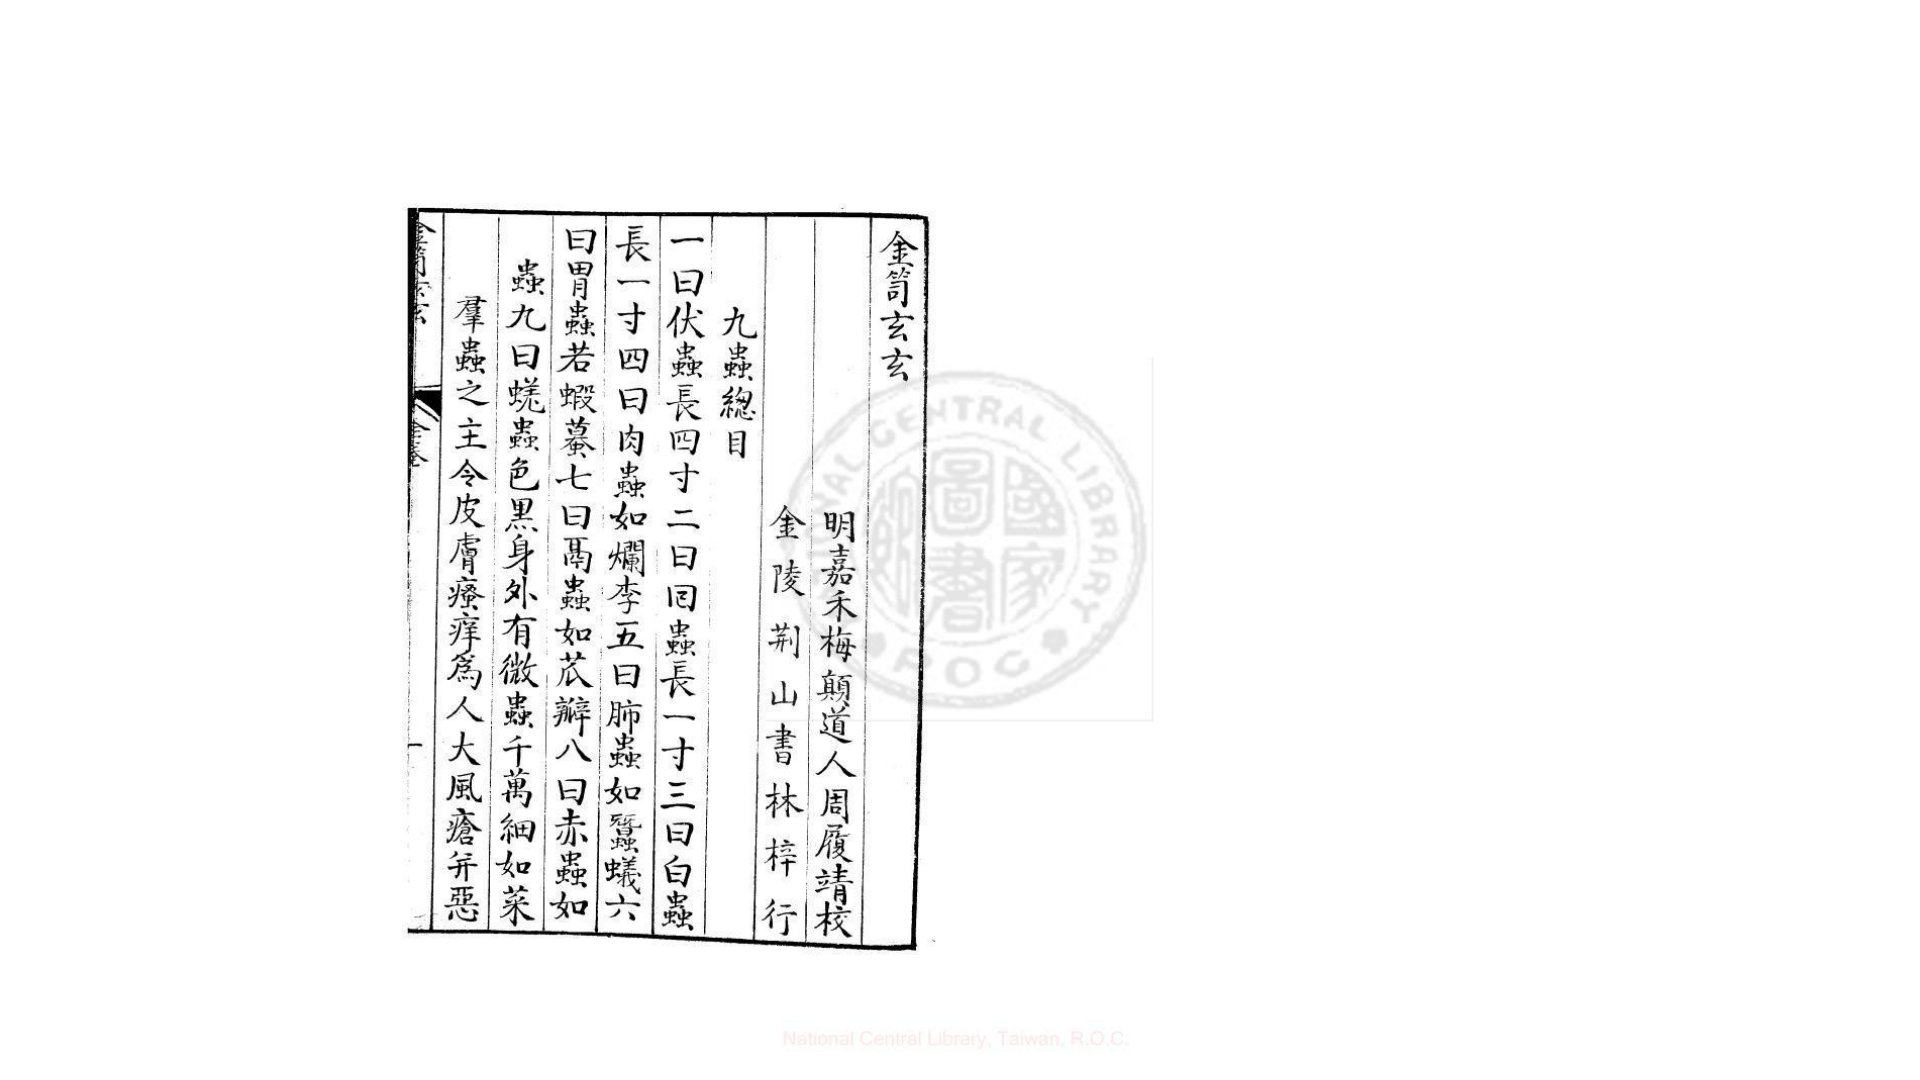 金笥玄玄
明嘉禾梅顛道人周履靖校
金陵荆山書林梓行
九蟲總目
一曰伏蟲長四寸二曰囘蟲長一寸三曰白蟲
長一寸四曰肉蟲如爛李五曰肺蟲如蠶蟻六
曰胃蟲若蝦蟇七曰鬲蟲如苽瓣八曰赤蟲如
蟲九曰蜣蟲色黒身外有微蟲千萬細如菜
羣蟲之主令皮膚瘙痒爲人大風瘡并惡
金笥玄玄
全卷
一
國家圖書館
NATIONAL CENTRAL LIBRARY
ROC
National Central Library, Taiwan, R.O.C.